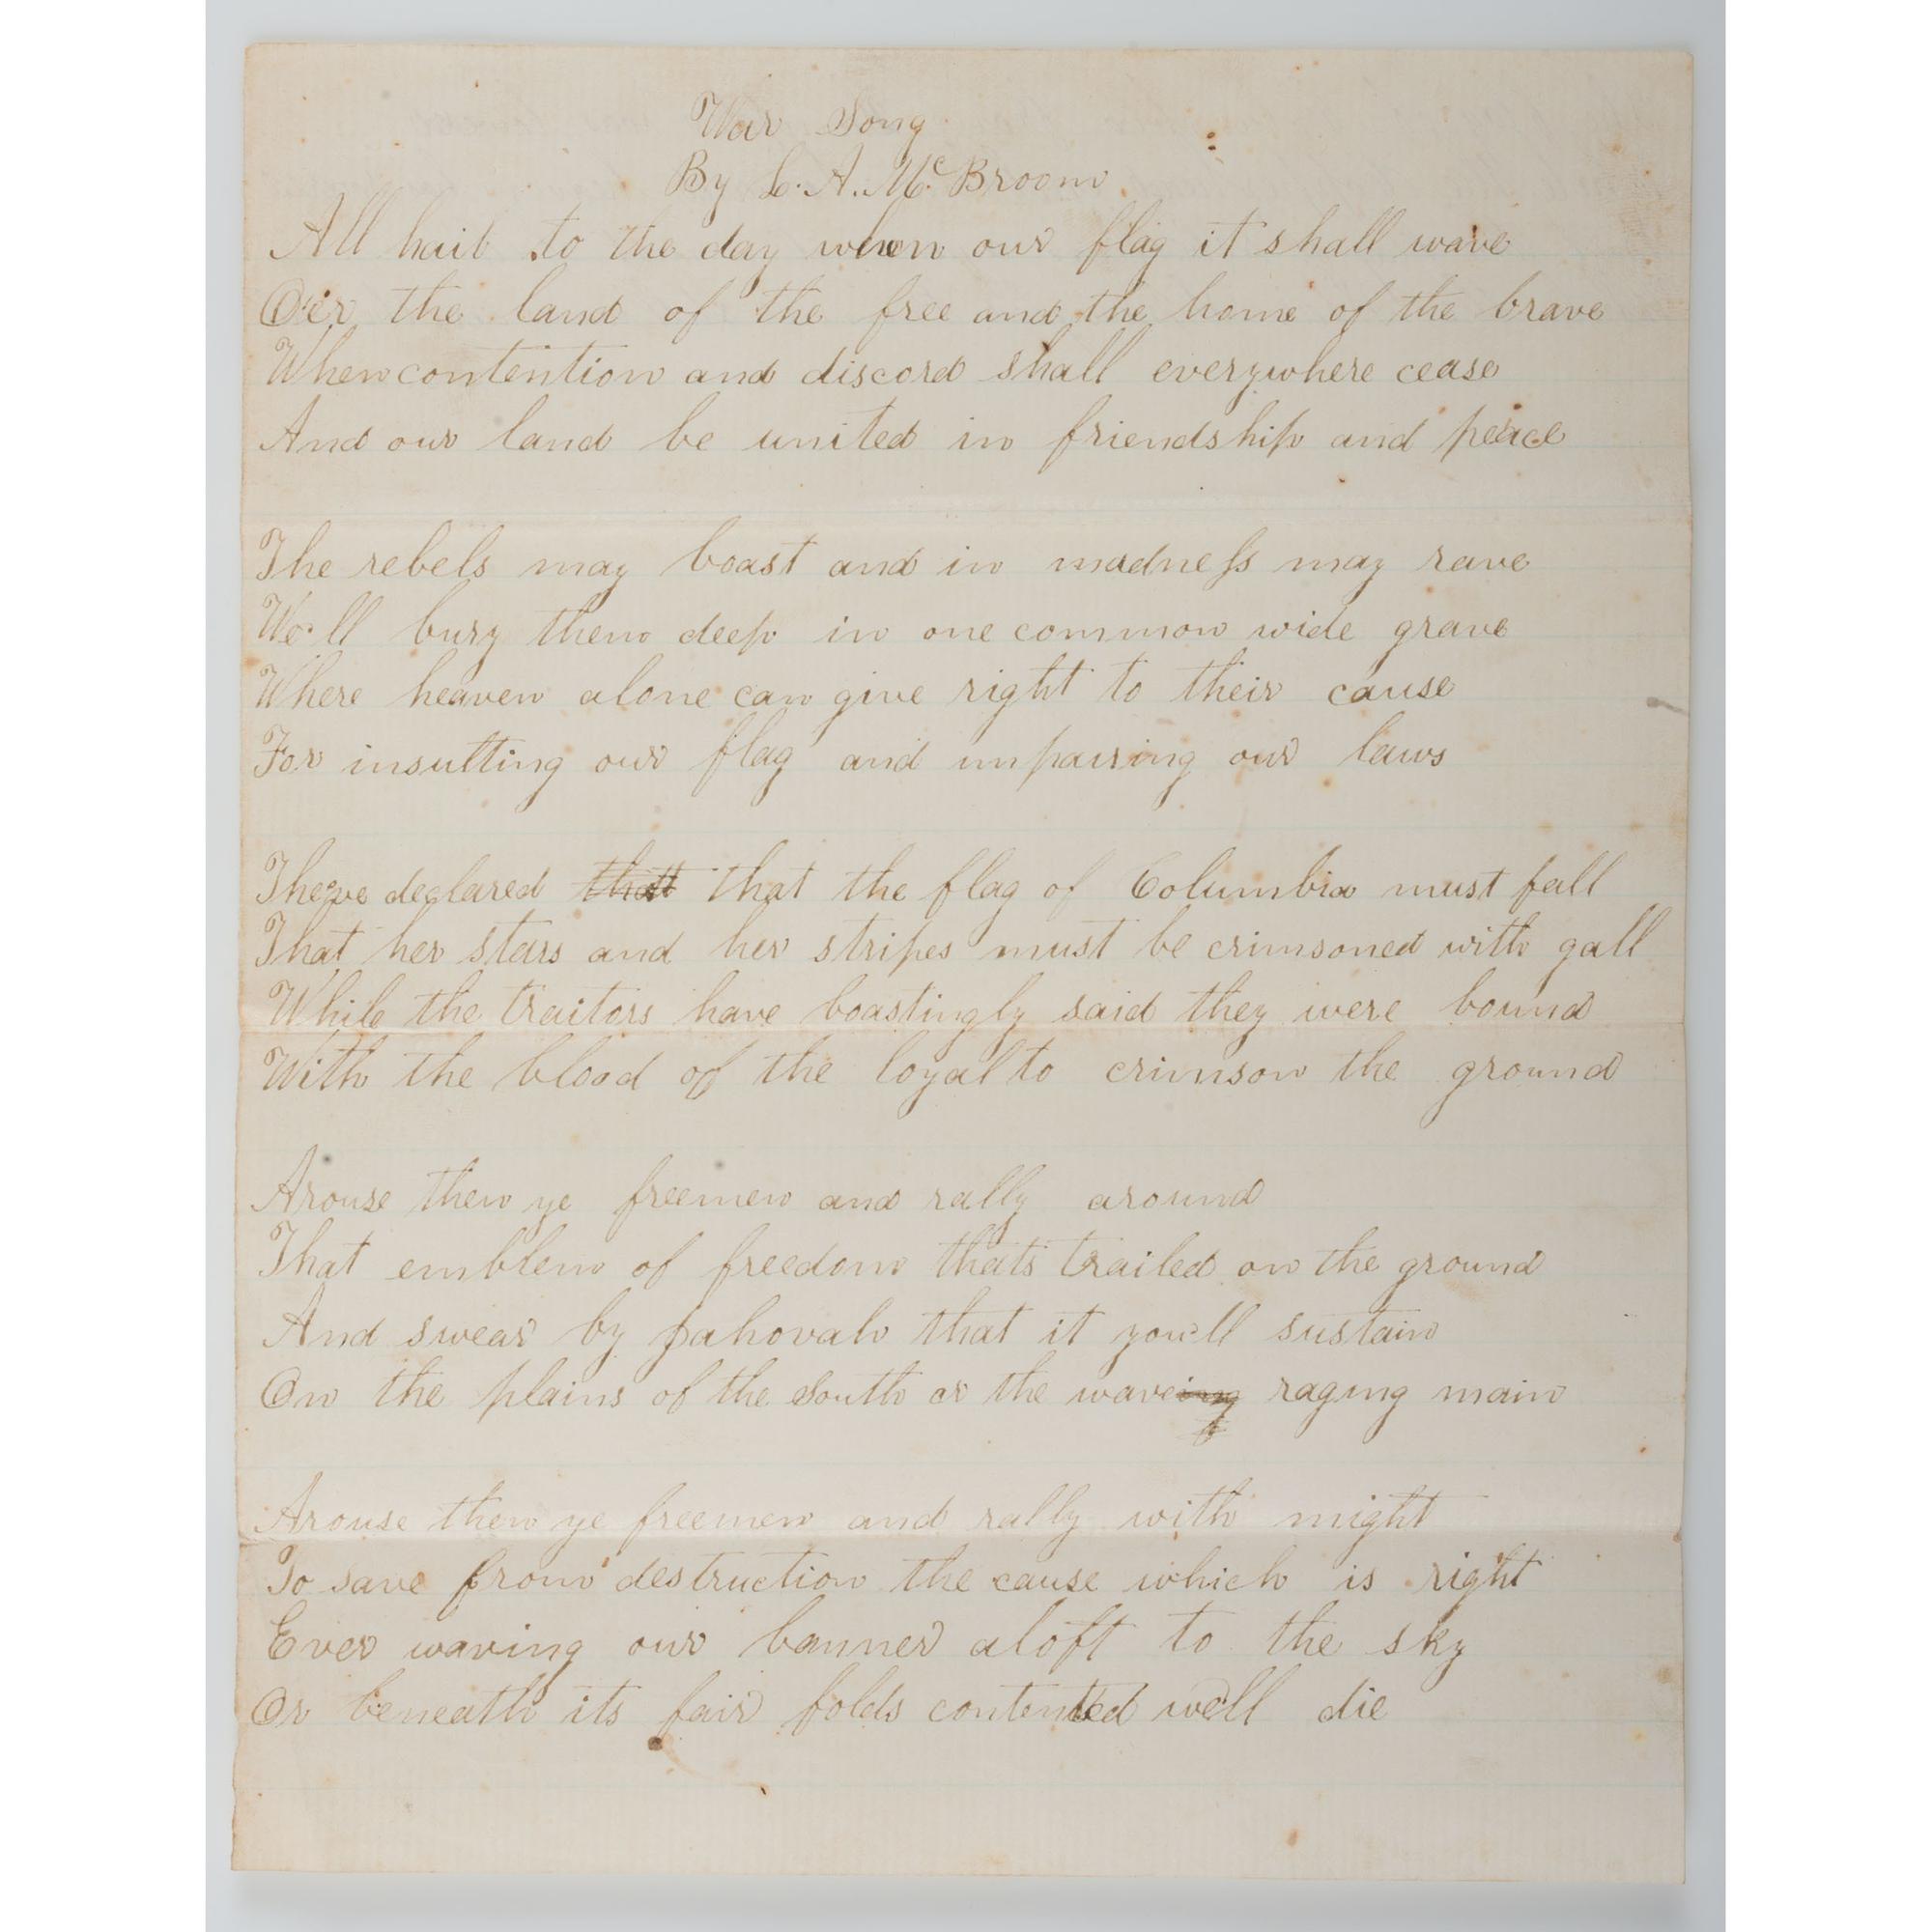 War Song
By L. A. McBroom
All hail to the day when our flag it shall wave
O'er the land of the free and the home of the brave
When contention and discord shall everywhere cease
And our land be united in friendship and peace
The rebels may boast and in madness may rave
We'll bury them deep in one common wide grave
Where heaven alone can give right to their cause
For insulting our flag and impairing our laws
They've declared that that the flag of Columbia must fall
That her stars and her stripes must be crimsoned with gall
While the traitors have boastingly said they were bound
With the blood of the loyal to crimson the ground
Arouse then ye freemen and rally around
That emblem of freedom thats trailed on the ground
And swear by jahovah that it you'll sustain
On the plains of the South or the waveing raging main
Arouse then ye freemen and rally with might
To save from destruction the cause which is right
Ever waving our banner aloft to the sky
Or beneath its fair folds contented we'll die